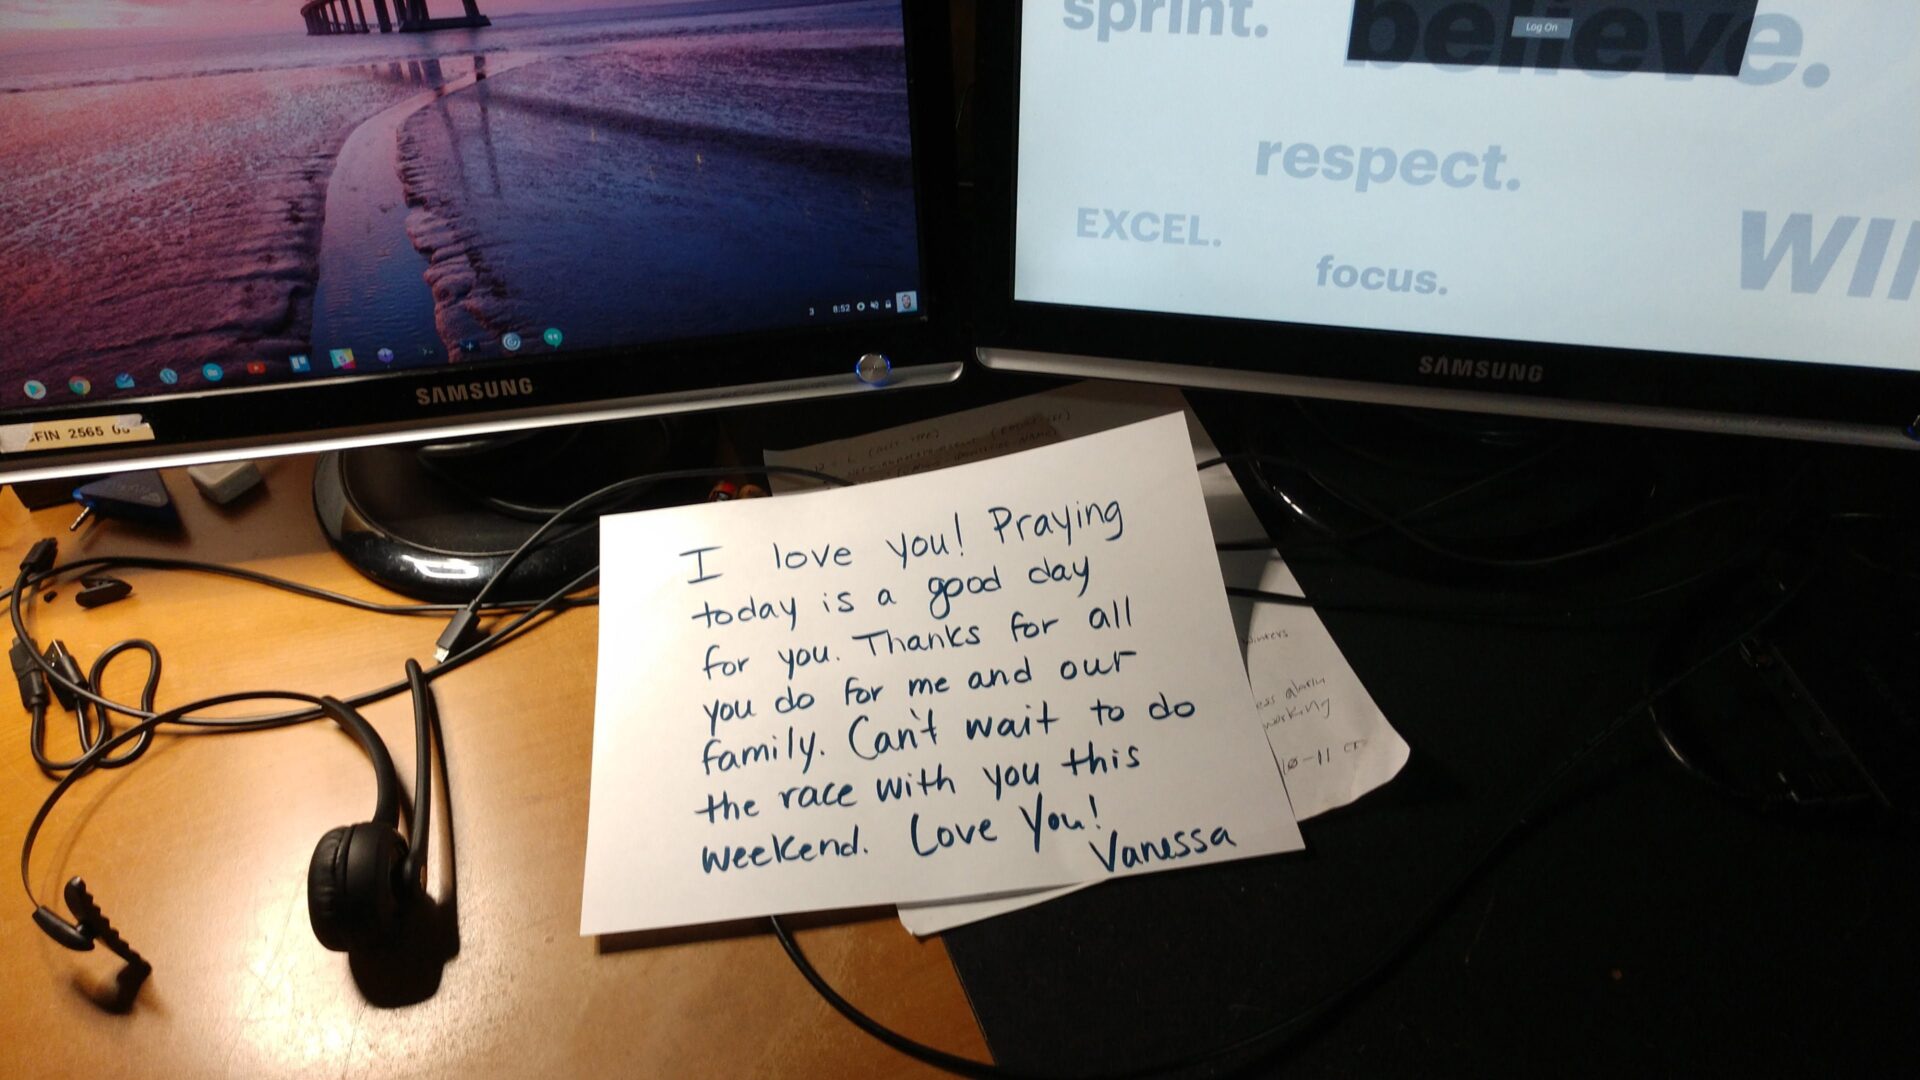 sprint.
believe.
Log On
respect.
EXCEL.
focus.
3 8:52
SAMSUNG
SAMSUNG
FIN 2565
I love you! Praying
today is a good day
for you. Thanks for all
you do for me and our
family. Can't wait to do
the race with you this
weekend. Love You!
Vanessa
winters
working
10-11